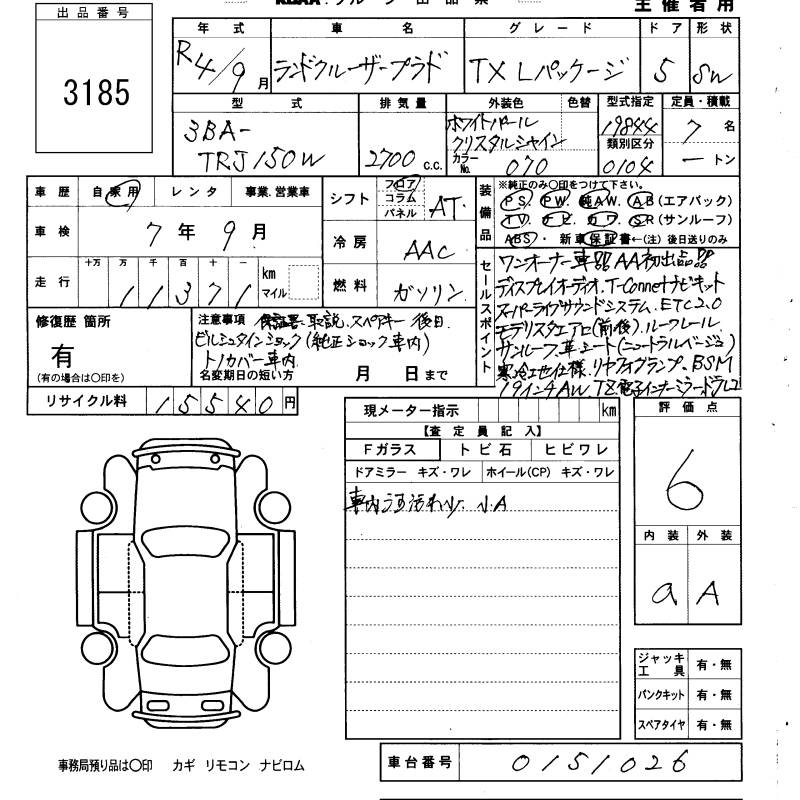 出品番号
3185
主催者用
年式 車名 グレード ドア 形状
R4/9月 ランドクルーザープラド TX Lパッケージ 5 SW
型式 排気量 外装色 色替 型式指定 定員・積載
3BA-
TRJ150W 2700 c.c. ホワイトパール
クリスタルシャイン
カラーNo. 070
19844
類別区分
0104
7名
ートン
車歴 自家用 レンタ 事業.営業車
車検 7年9月
走行 十万 万 千 百 十 一
11371 km マイル
シフト フロア コラム パネル AT
冷房 AAC
燃料 ガソリン
装備品 ※純正のみ〇印をつけて下さい。
PS PW 純AW. AB(エアバック)
TV ナビ カワ SR(サンルーフ)
ABS・新車保証書←(注)後日送りのみ
セールスポイント
ワンオーナー車 AA初出品
ディスプレイオーディオ.T-Connectナビキット
スーパーライブサウンドシステム.ETC2.0
モデリスタエアロ(前後).ルーフレール
サンルーフ.革シート(ニュートラルベージュ)
寒冷地仕様.リヤフォグランプ.BSM
19インチAW.TZ.電子インナーミラードラレコ
修復歴 箇所
有
(有の場合は〇印を)
注意事項 保証書.取説.スペアキー 後日
ビルシュタインショック(純正ショック車内)
トノカバー車内
名変期日の短い方 月 日まで
リサイクル料 15540円
現メーター指示 km
【査定員記入】
Fガラス トビ石 ヒビワレ
ドアミラー キズ・ワレ ホイール(CP) キズ・ワレ
車内 汚れ小 小A
評価点
6
内装 外装
a A
ジャッキ工具 有・無
パンクキット 有・無
スペアタイヤ 有・無
事務局預り品は〇印 カギ リモコン ナビロム
車台番号 0151026